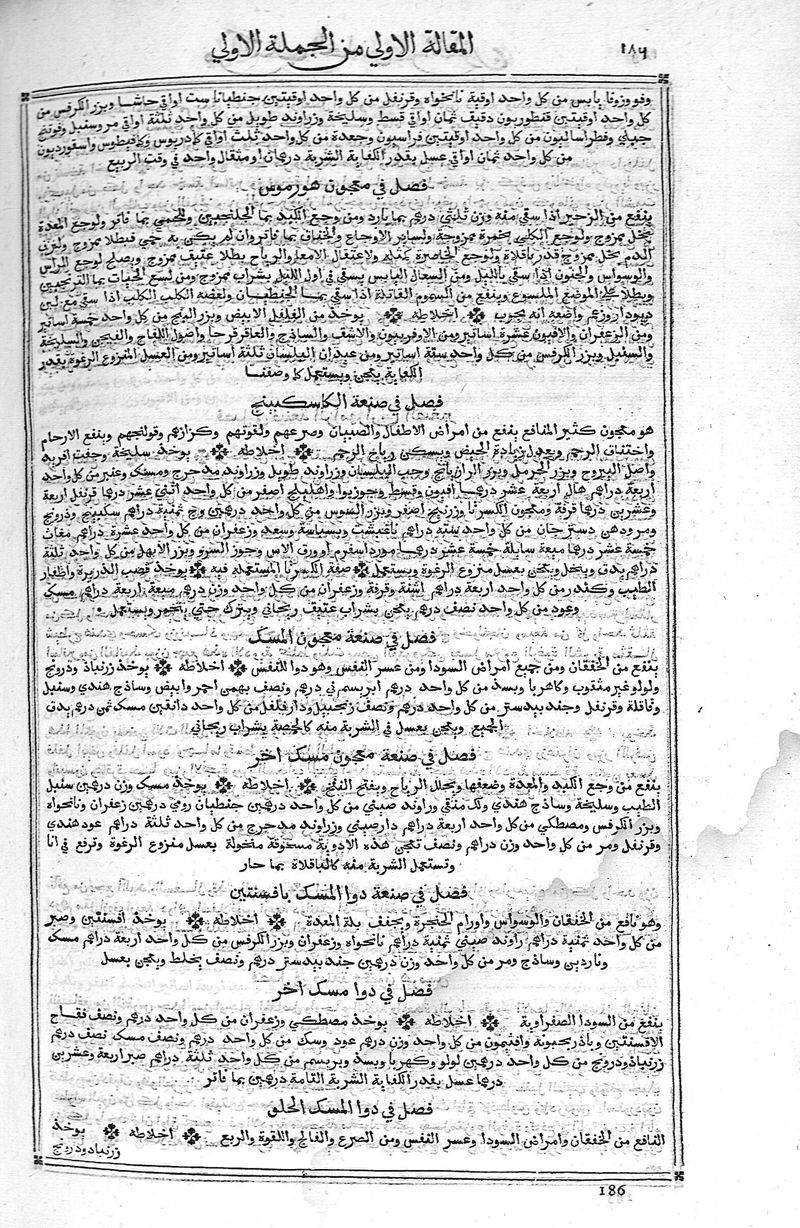 ١٨٦
المقالة الاولي من الجملة الاولي
وفوو زوفا يابس من كل واحد اوقية نانخواه وقرنفل من كل واحد اوقيتين جنطيانا ست اواقي حاشا وبزر الكرفس من
كل واحد اوقيتين قنطوريون دقيق ثمان اواقي قسط وسليخة وزراوند طويل من كل واحد ثلثة اواقي مر وسنبل وفوتنج
جبلي وفطراساليون من كل واحد اوقيتين فراسيون وجعدة من كل واحد ثلث اواقي كمادريوس وكمافيطوس واسقورديون
من كل واحد ثمان اواقي عسل بقدر الكفاية الشربة درهمان او مثقال واحد في وقت الربيع
فصل في معجون هورموس
ينفع من الزحير اذا سقي منه وزن ثلثي درهم بما بارد ومن وجع الكبد بما الجلنجبين وللحمي بما فاتر ولوجع المعدة
بخل ممزوج ولوجع الكلي بخمرة ممزوجة ولساير الاوجاع والخناق بما فاتر وان لم يكن به حمي فبطلا ممزوج ولنزف
الدم بخل ممزوج قدر باقلاة ولوجع الخاصرة كمثله ولاعتقال الامعا والرياح بطلا عتيق ممزوج ويصلح لوجع الراس
والوسواس والجنون اذا سقي بالليل ومن السعال اليابس يسقي في اول الليل بشراب ممزوج ومن لسع الحيات بما الترنجبين
ويطلا علي الموضع الملسوع وينفع من السموم القاتلة اذا سقي بما الجنطيان ولعضة الكلب الكلب اذا سقي مع لبن
وزعم واضعه انه مجرب اخلاطه يوخذ من الفلفل الابيض وبزر البنج من كل واحد خمسة اساتير
ومن الزعفران والافيون عشرة اساتير ومن الاوفربيون والاشق والساذج والعاقرقرحا واصول اللفاح والفيجن والسليخة
والسنبل وبزر الكرفس من كل واحد ستة اساتير ومن عيدان البلسان ثلثة اساتير ومن العسل المنزوع الرغوة بقدر
الكفاية يعجن ويستعمل كما وصفنا
فصل في صنعة الكاسكبينج
هو معجون كثير المنافع ينفع من امراض الاطفال والصبيان وصرعهم ولقوتهم وكزازهم وقولنجهم وينفع الارحام
واختناق الرحم ويعدل زيادة الحيض ويسكن رياح الرحم اخلاطه يوخذ سليخة وجفت افريد
واصل اليبروح وبزر الحرمل وبزر الرازيانج وحب البلسان وزراوند طويل وزراوند مدحرج ومسك وعنبر من كل واحد
اربعة دراهم هال اربعة عشر درهما افيون وقسط وجوزبوا واهليلج اصفر من كل واحد اثني عشر درهما قرنفل اربعة
وعشرين درهما قرفة ومعجون الكسرنا وزرنيخ اصفر وبزر السوس من كل واحد درهمين وج ثمنية دراهم سكبينج ودرونج
من كل واحد ستة دراهم وبسباسة وسعد وزعفران من كل واحد عشرة دراهم مغاث
خمسة عشر درهما ميعة سايلة خمسة عشر درهما مرداسفرم او ورق الاس وجوز السرو وبزر الابهل من كل واحد ثلثة
دراهم يدق وينخل ويعجن بعسل منزوع الرغوة ويستعمل صفة الكسرنا المستعملة فيه يوخذ قصب الذريرة واظفار
الطيب وكندر من كل واحد اربعة دراهم اشنة وقرفة وزعفران من كل واحد وزن درهم ميعة اربعة دراهم مسك
وعود من كل واحد نصف درهم يعجن بشراب عتيق ريحاني ويترك حتي يتخمر ويستعمل
فصل في صنعة معجون المسك
ينفع من الخفقان ومن جميع امراض السودا ومن عسر النفس وهو دوا للنفس اخلاطه يوخذ زرنباد ودرونج
ولولو غير مثقوب وكاهربا وبسد من كل واحد درهم ابريسم ني درهم ونصف بهمن احمر وابيض وساذج هندي وسنبل
وقاقلة وقرنفل وجندبيدستر من كل واحد درهم ونصف زنجبيل ودارفلفل من كل واحد دانقين مسك ثمن درهم يدق
الجميع ويعجن بعسل في الشربة منه كالحمصة بشراب ريحاني
فصل في صنعة معجون مسك اخر
ينفع من وجع الكبد والمعدة وضعفها ويحلل الرياح ويفتح النفخ اخلاطه يوخذ مسك وزن درهمين سنبل
الطيب وسليخة وساذج هندي ولك منقي وراوند صيني من كل واحد درهمين جنطيان رومي درهمين زعفران ونانخواه
وبزر الكرفس ومصطكي من كل واحد اربعة دراهم دارصيني وزراوند مدحرج من كل واحد ثلثة دراهم عود هندي
وقرنفل ومر من كل واحد وزن درهم ونصف تعجن هذه الادوية مسحوقة منخولة بعسل منزوع الرغوة وترفع في انا
وتستعمل الشربة منه كالباقلاة بما حار
فصل في صنعة دوا المسك بافسنتين
وهو نافع من الخفقان والوسواس واورام الحنجرة ويجفف بلة المعدة اخلاطه يوخذ افسنتين وصبر
من كل واحد ثمنية دراهم راوند صيني ثمنية دراهم نانخواه وزعفران وبزر الكرفس من كل واحد اربعة دراهم مسك
وناردين وساذج ومر من كل واحد وزن درهمين جندبيدستر درهم ونصف يخلط ويعجن بعسل
فصل في دوا مسك اخر
ينفع من السودا الصفراوية اخلاطه يوخذ مصطكي وزعفران من كل واحد درهم ونصف فقاح
الافسنتين وباذرنجبونة وافتيمون من كل واحد وزن درهم عود وسك من كل واحد درهم ونصف مسك نصف درهم
زرنباد ودرونج من كل واحد درهمين لولو وكهربا وبسد وبريسم من كل واحد ثلثة دراهم صبر اربعة وعشرين
درهما عسل بقدر الكفاية الشربة التامة درهمين بما فاتر
فصل في دوا المسك الحلو
النافع من الخفقان وامراض السودا وعسر النفس ومن الصرع والفالج واللقوة والربع اخلاطه يوخذ
زرنباد ودرونج
186